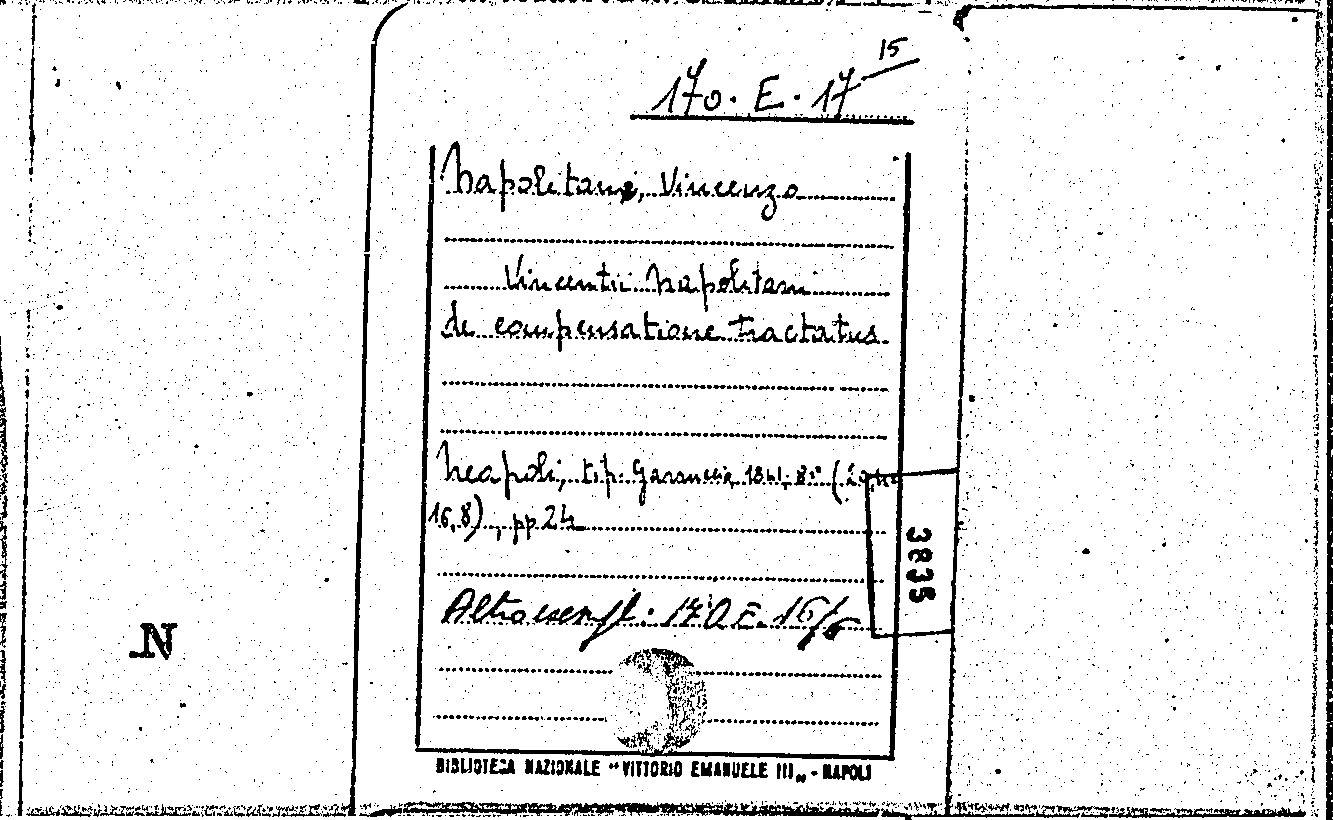 170. E. 17 15
Napolitani, Vincenzo
Vincentii Napolitani
de compensatione tractatus
Neapoli, tip. 1841, 8°
16,8), pp. 24
Altro esempl. 170 E. 16/6
3835
N
BIBLIOTECA NAZIONALE "VITTORIO EMANUELE III„ - NAPOLI